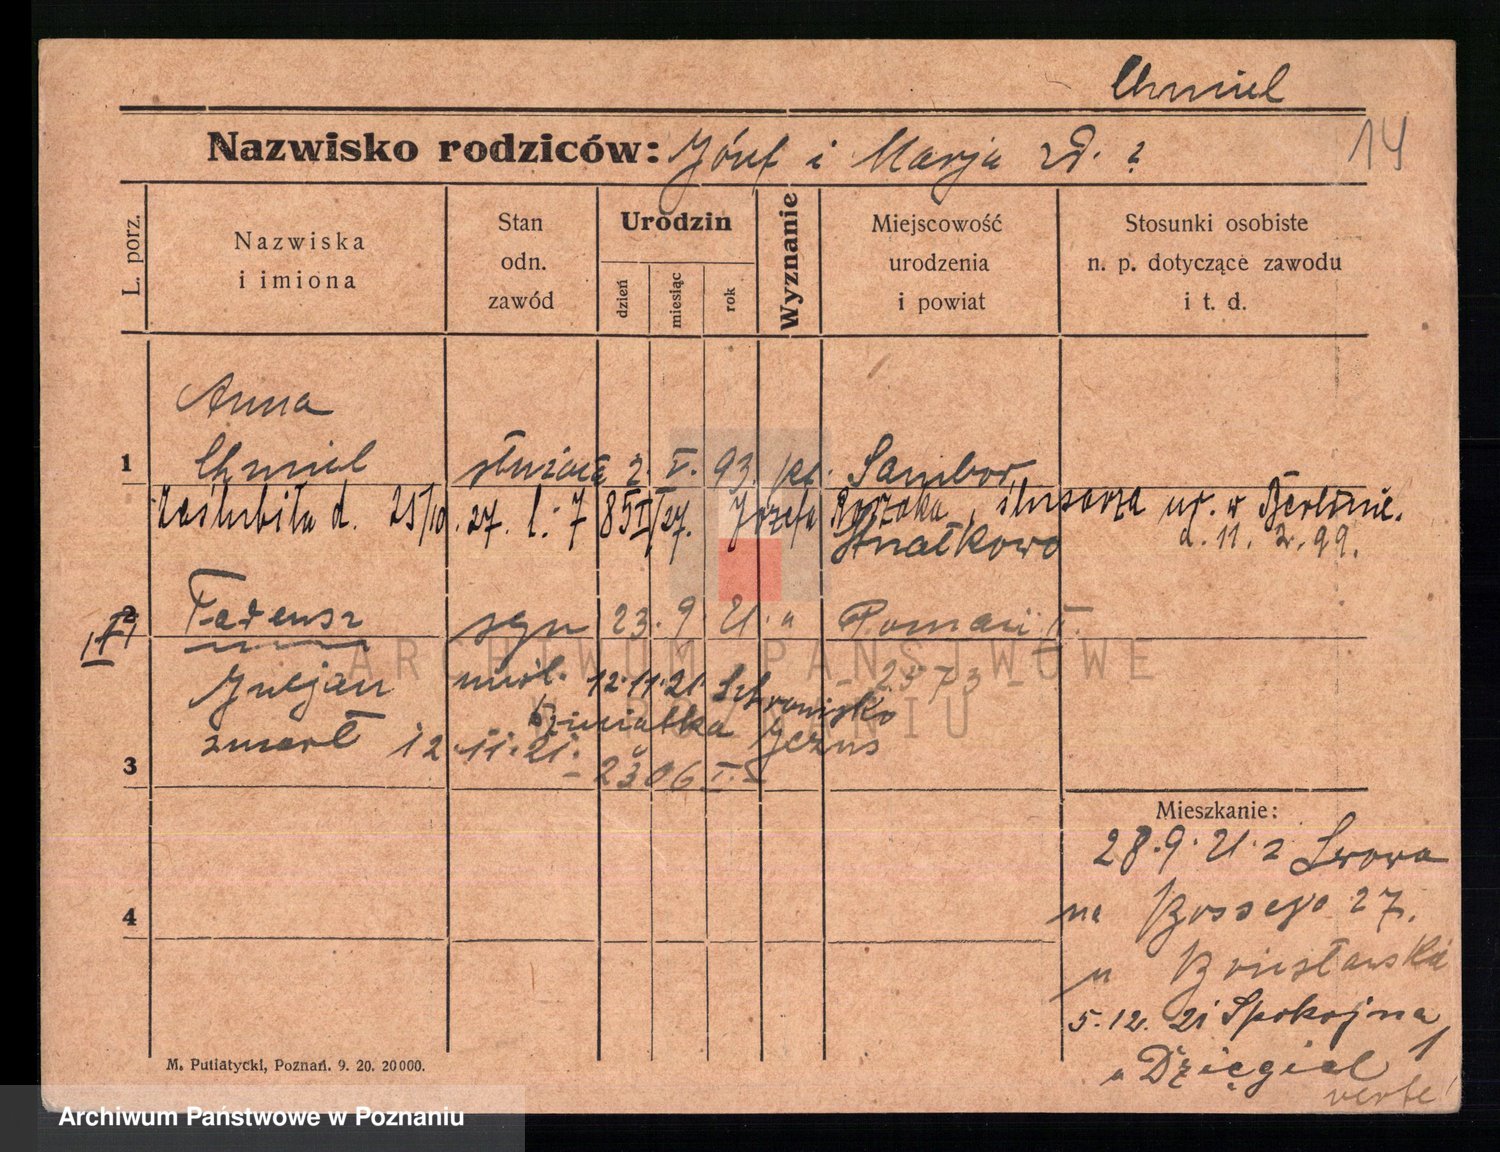 Chmiel
Nazwisko rodziców: Józef i Marja zd. ?
14
L. porz.
Nazwiska
i imiona
Stan
odn.
zawód
Urodzin
dzień
miesiąc
rok
Wyznanie
Miejscowość
urodzenia
i powiat
Stosunki osobiste
n. p. dotyczące zawodu
i t. d.
Anna
1 Chmiel służąca 2. V. 93. kt. Sambor
Zaślubiła d. 25/10. 27. l. 7 85 27. Józefa ślusarza ur. w Berlinie.
d. 11. 2. 99.
2 Tadeusz syn 23. 9 21. " Poznań
- 2573 -
Juljan 12.11.21. Schronisko
Dzieciątka Jezus
zmarł 12.11.21.
3 - 2306
4
Mieszkanie:
28.9.21. z Lwowa
na 27.
5.12. 21 Spokojna
u Dzięgiel
verte!
M. Putiatycki, Poznań. 9. 20. 20000.
ARCHIWUM PAŃSTWOWE
W POZNANIU
Archiwum Państwowe w Poznaniu